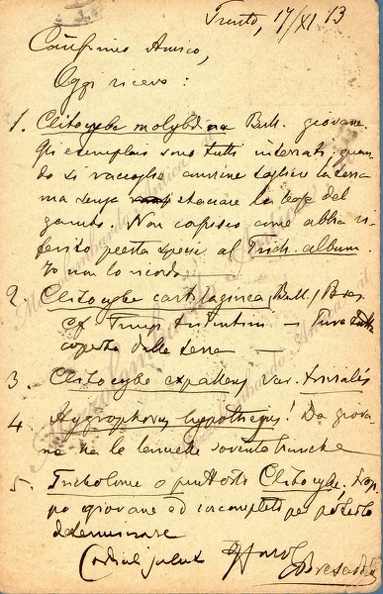 Trento, 17/XI 13
Carissimo Amico,
Oggi ricevo:
1. Clitocybe molybdina Bull. giovane.
Gli esemplari sono tutti interrati, quan
do si raccoglie conviene la terra
ma senza staccare la terra dal
gambo. Non capisco come abbia ri
ferito questa specie al Trich. album.
Io non lo ricordo.
2. Clitocybe cartilaginea (Bull.) Bres.
cf. Fungi tridentini — tutta
coperta dalla terra —
3 Clitocybe expallens var.
4 Hygrophorus hypothejus! Da giova
ne ha le lamelle sovente bianche
5. Tricholoma o piuttosto Clitocybe. Trop
po giovane ed incompleto per poterlo
determinare
Cordiali saluti Bresadola